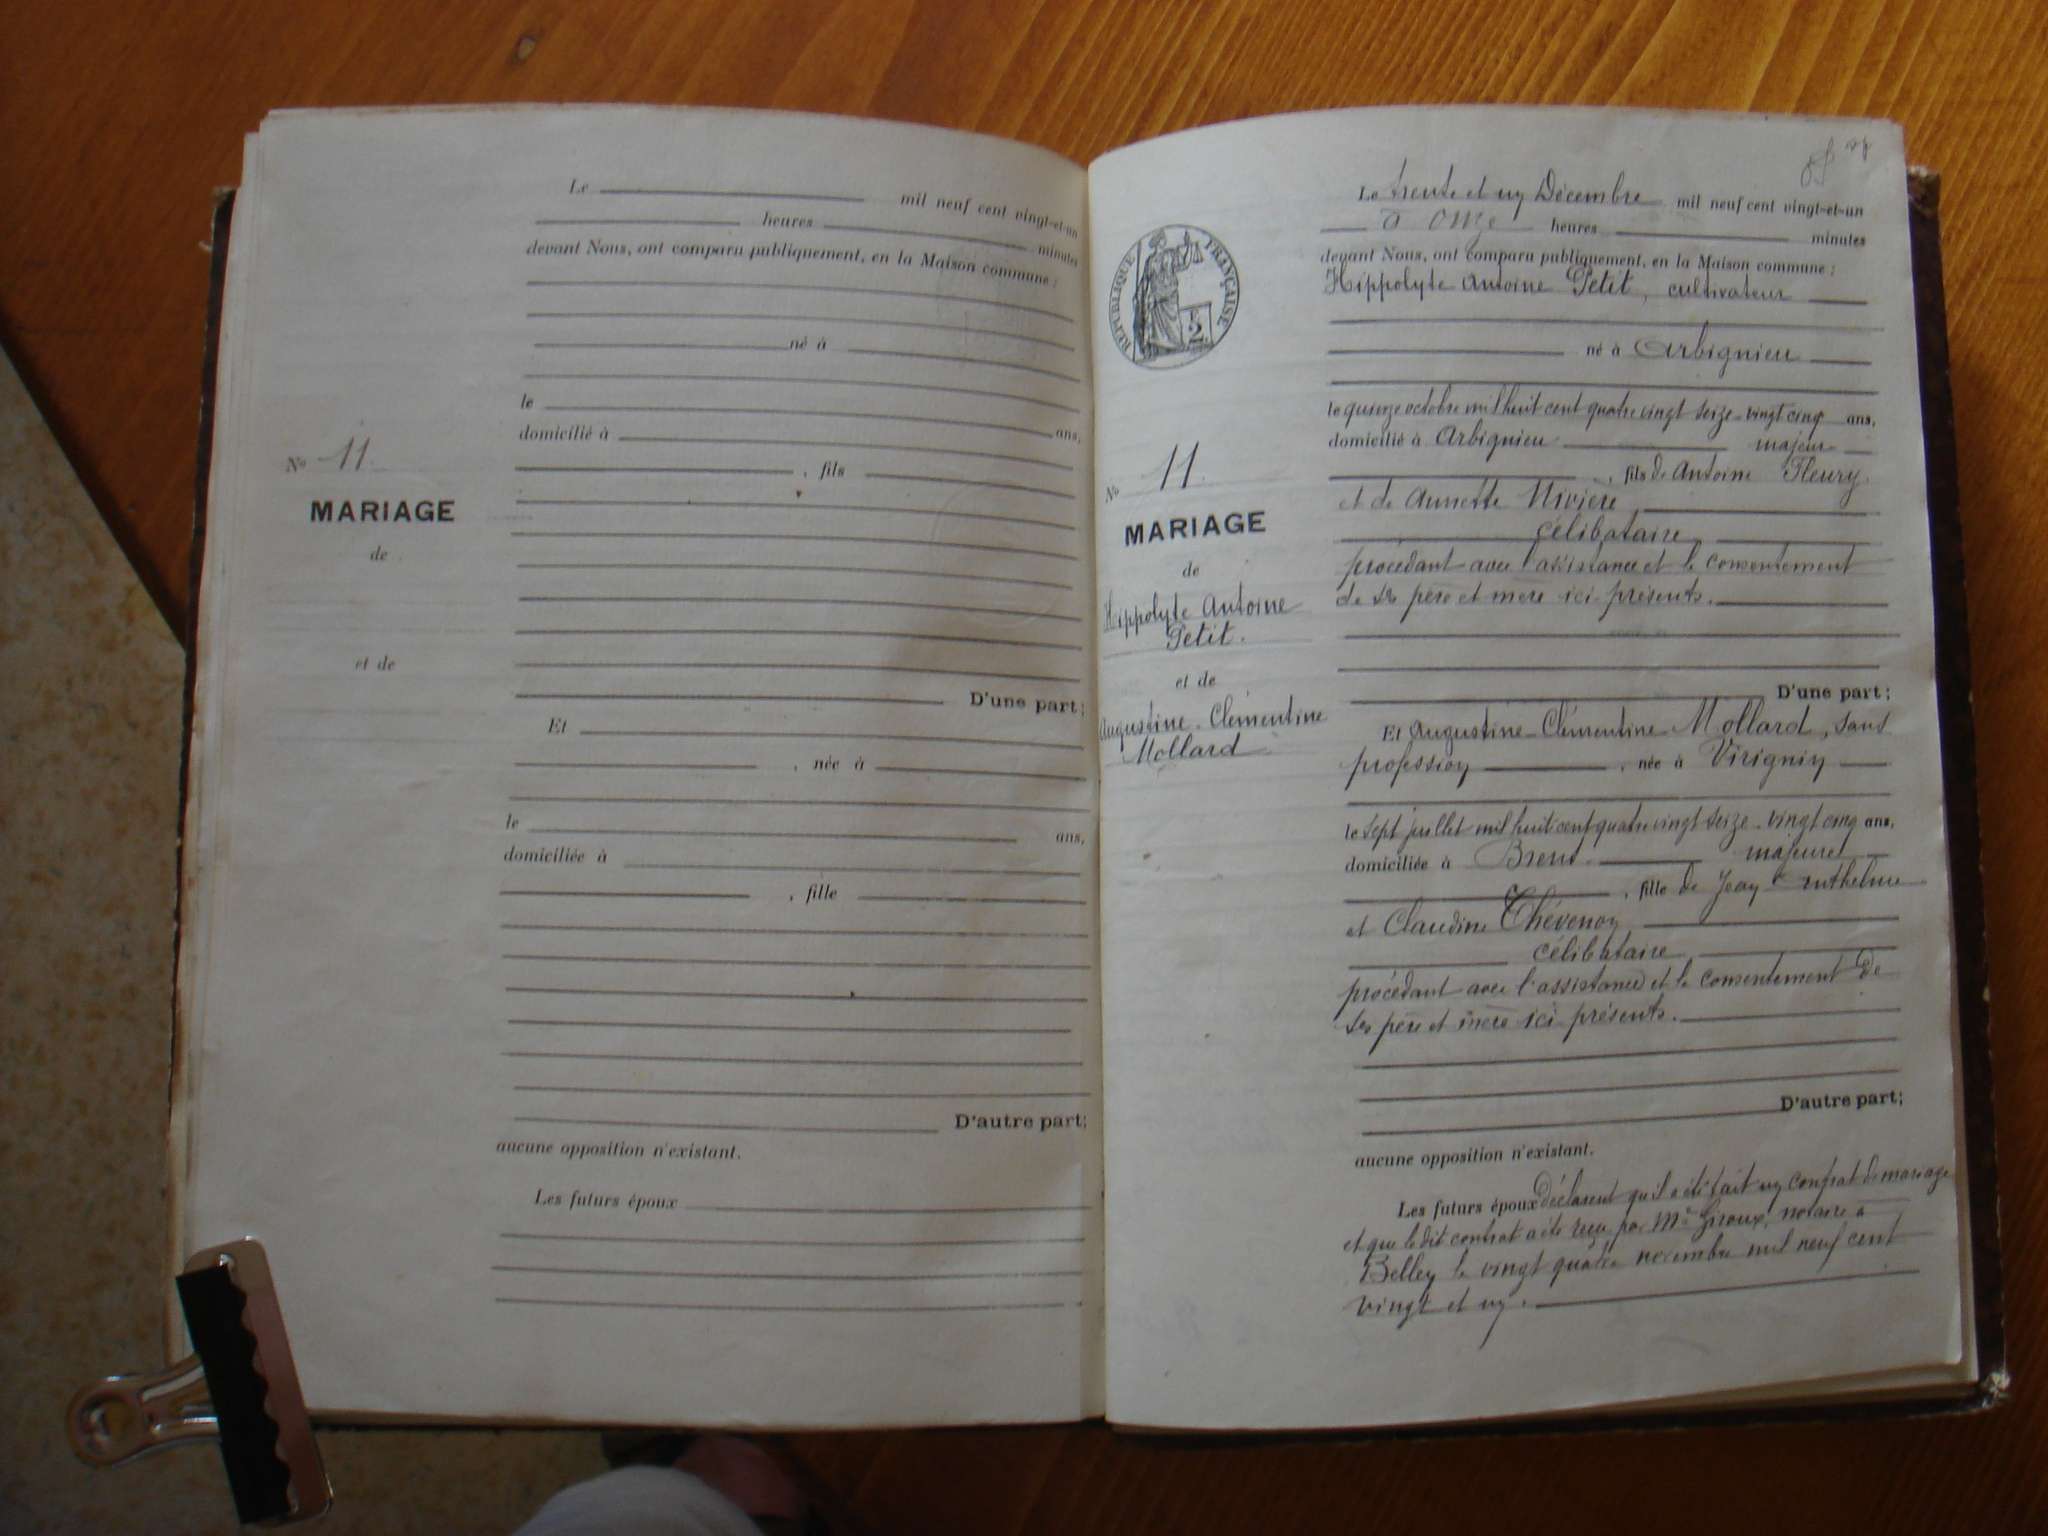 Le mil neuf cent vingt-et-un
heures minutes
devant Nous, ont comparu publiquement, en la Maison commune :
né à
le ans,
domicilié à
, fils
D'une part;
Et
, née à
le ans,
domiciliée à
, fille
D'autre part;
aucune opposition n'existant.
Les futurs époux
No 11.
MARIAGE
de
et de
Le trente et un Décembre mil neuf cent vingt-et-un
à onze heures minutes
devant Nous, ont comparu publiquement, en la Maison commune :
Hippolyte Antoine Petit, cultivateur
né à Arbignieu
le quinze octobre mil huit cent quatre vingt seize - vingt cinq ans,
domicilié à Arbignieu majeur
, fils de Antoine Fleury
et de Annette Nivière
célibataire
procédant avec l'assistance et le consentement
de ses père et mère ici présents.
D'une part;
Et Augustine - Clémentine Mollard, sans
profession, née à Virignin
le sept juillet mil huit cent quatre vingt seize - vingt cinq ans,
domiciliée à Brens majeure
, fille de Jean Anthelme
et Claudine Thévenon
célibataire
procédant avec l'assistance et le consentement de
ses père et mère ici présents.
D'autre part;
aucune opposition n'existant.
Les futurs époux déclarent qu'il a été fait un contrat de mariage
et que le dit contrat a été reçu par Me Giroux, notaire à
Belley le vingt quatre novembre mil neuf cent
vingt et un.
RÉPUBLIQUE FRANÇAISE
No 11.
MARIAGE
de
Hippolyte Antoine
Petit.
et de
Augustine - Clémentine
Mollard